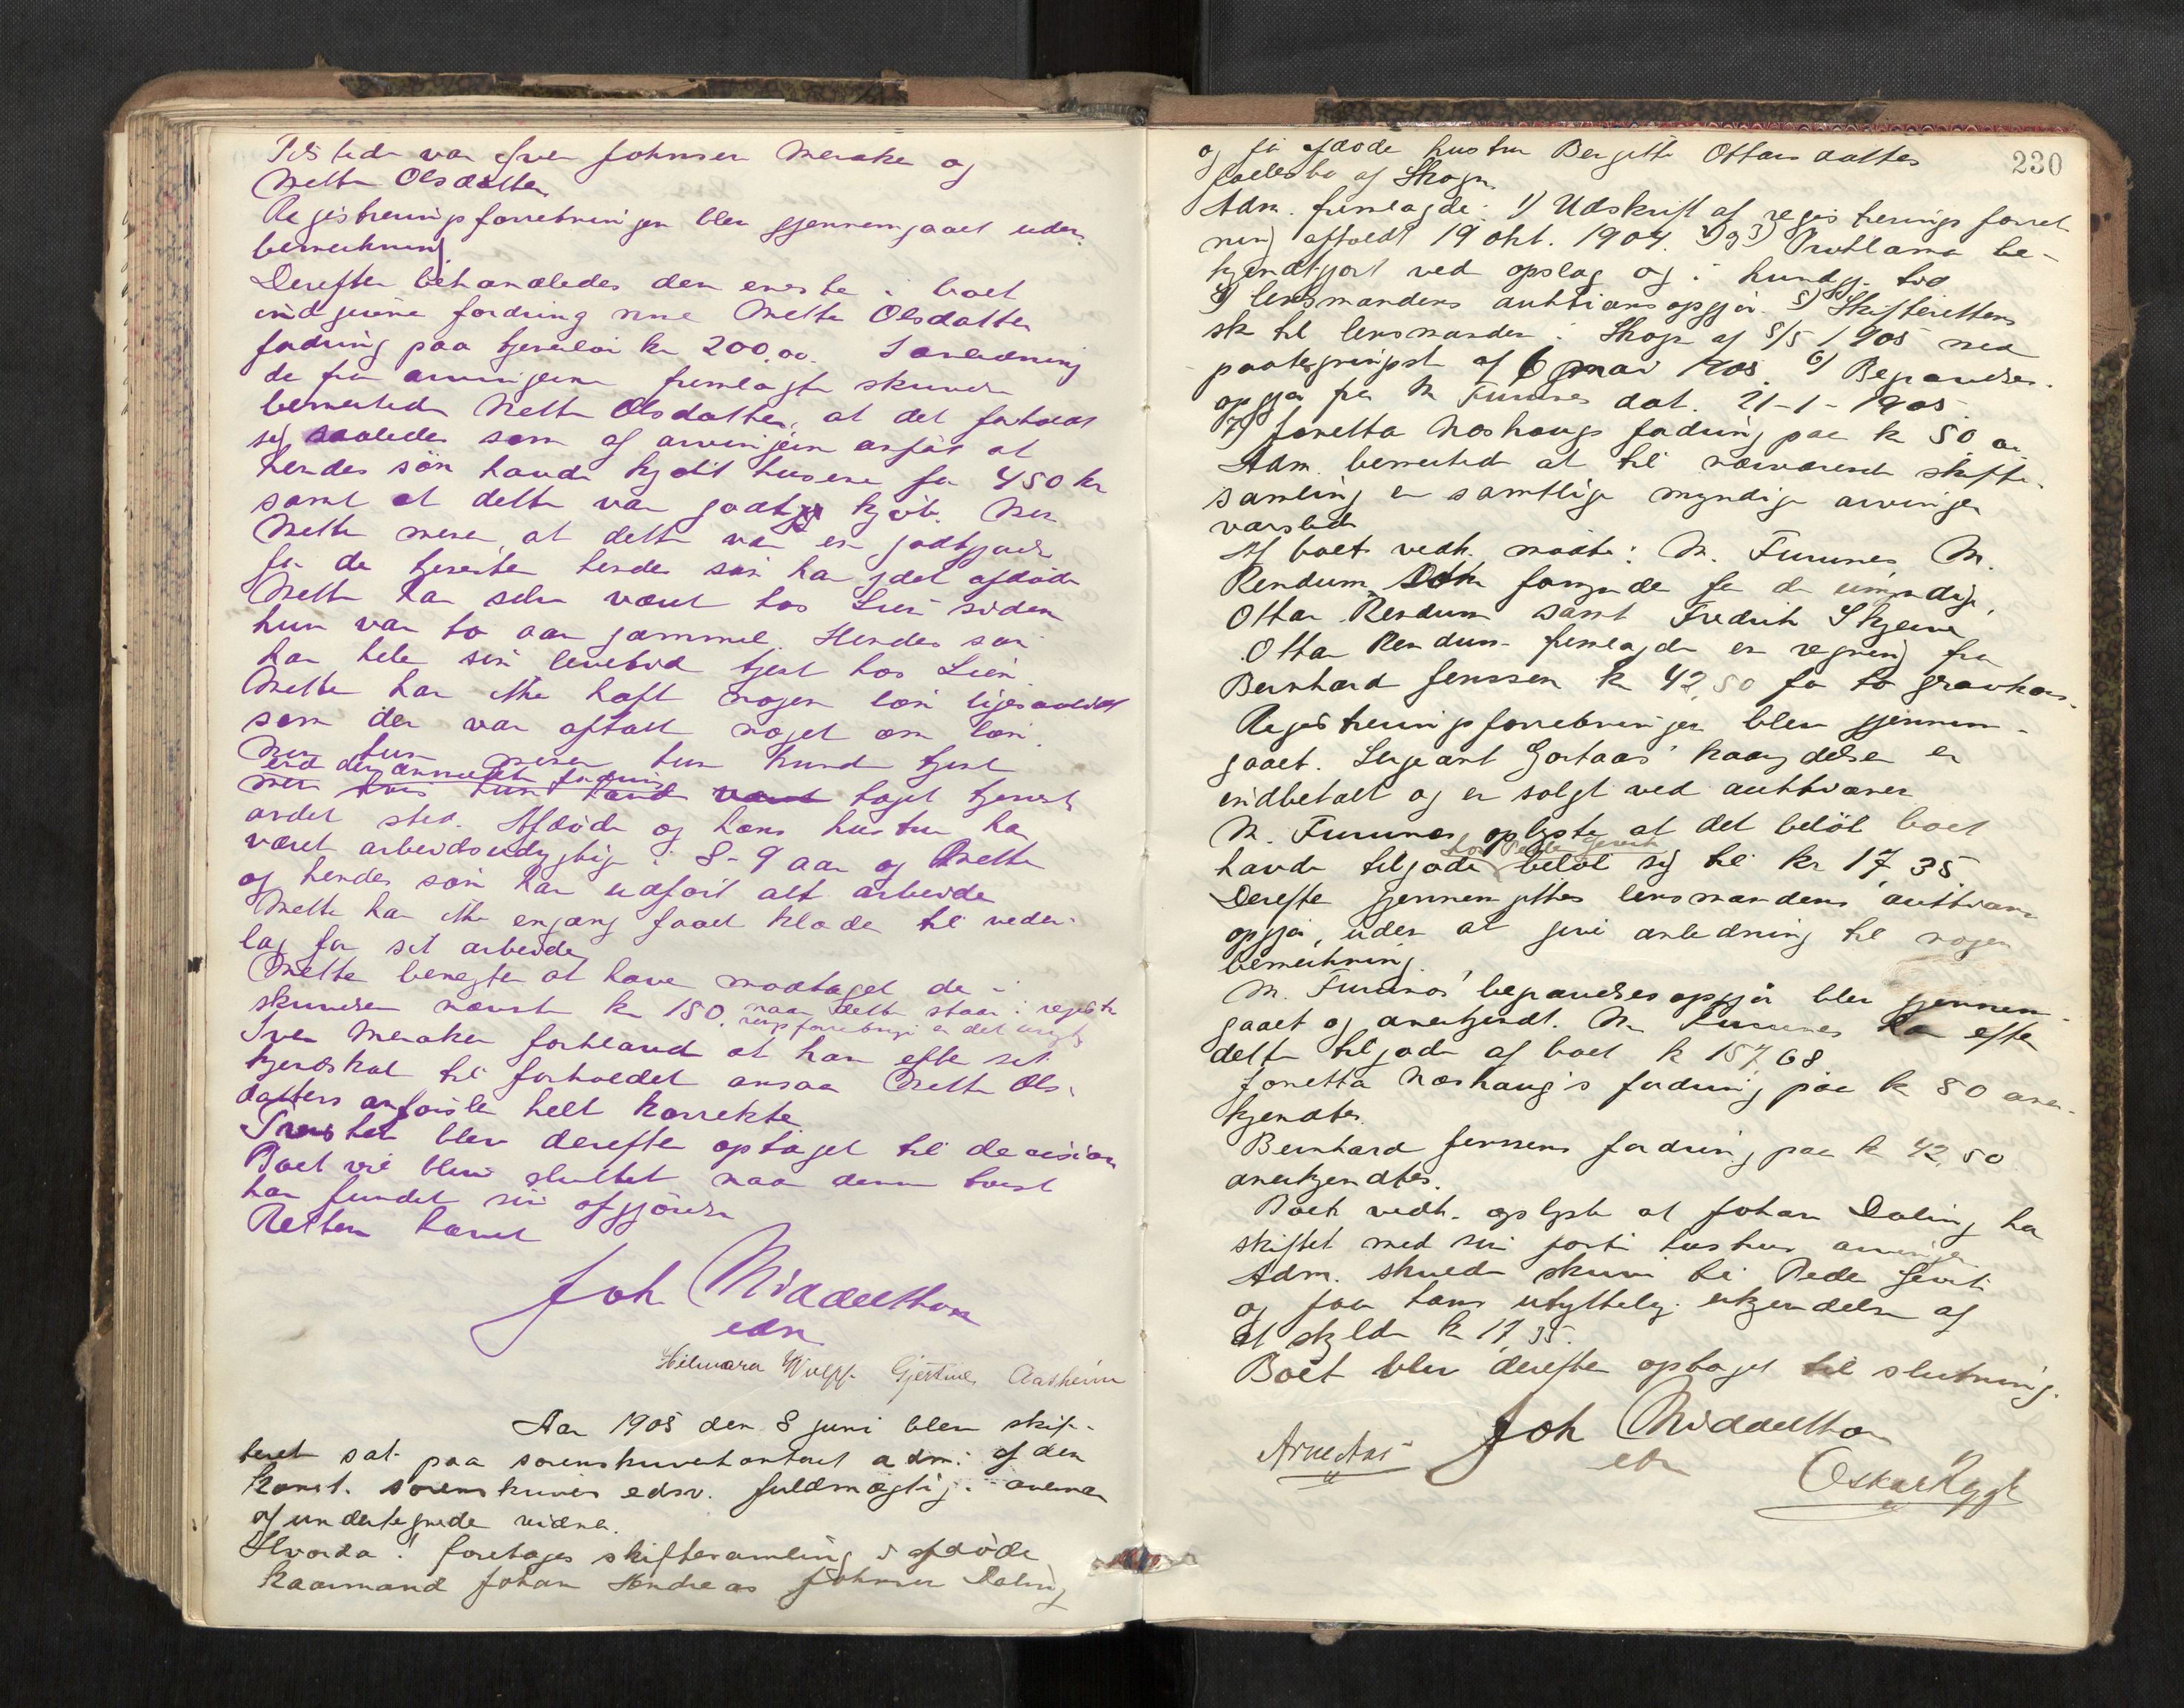 Tilstede var Iver Johnsen Meraker og
Mette Olsdatter.
Registreringsforretningen blev gjennemgaaet uden
bemerkning.
Derefter behandledes den eneste i boet
indgivne fordring nml Mette Olsdatters
fordring paa tjenerløn kr 200.00. I anledning
de fra arvingerne fremlagte skrivelser
bemerkede Mette Olsdatter, at det forholdt
sig saaledes som af arvingerne anført at
hendes søn havde kjøbt husene for 450 kr
samt at dette var godt kjøb. Men
Mette mener at dette var en godtgjørelse
for de tjenester hendes søn har ydet afdøde
Mette har selv været hos Lien siden
hun var to aar gammel. Hendes søn
har hele sin levetid tjent hos Lien.
Mette har ikke havt nogen løn ligesaalidt
som der var aftalt noget om løn.
Men hun mener hun kunde tjent
ved den anmeldte fordring
men hvis hun havde været taget tjeneste
andet sted. Afdøde og hans hustru har
været arbeidsudygtige i 8-9 aar og Mette
og hendes søn har udført alt arbeide
Mette har ikke engang faaet klæder til veder-
lag for sit arbeide
Mette benegter at have modtaget de i
skrivelsen nævnte kr 180. naar dette staar i registre
ringsforretningen er det urigtigt
Iver Meraker forklarede at han efter sit
kjendskab til forholdet ansaa Mette Ols-
datters anførsler helt korrekte.
Tvisten blev derefter optaget til decision
Boet vil blive sluttet naar denne tvist
har fundet sin afgjørelse
Retten hævet
Joh Middelthon
edsv
Hilmara Wulff Gjertine Aasheim
Aar 1905 den 8 juni blev skif-
teret sat paa sorenskriverkontoret adm: af den
konst. sorenskriver edsv. fuldmægtig i overvær
af undertegnede vidner.
Hvorda: foretages skiftesamling i afdøde
kaarmand Johan Andreas Johnsen Daling
230
og før afdøde hustru Bergitte Ottarsdatters
fællesbo af Skogn.
Adm. fremlagde: 1) Udskrift af registreringsforret
ning afholdt 19 okt. 1904. 2) og 3) Proklama be-
kjendtgjort ved opslag og i kundgj. tid
4) lensmandens auktionsopgjør. 5) Skifterettens
sk til lensmanden i Skogn af 8/5 1905 med
paategningsk af 6 mai 1905. 6) Begravelses-
opgjør fra M Furunes dat. 21-1-1905.
7) Jonetta Moshaugs fordring paa kr 50 00
Adm. bemerkede at til nærværende skifte-
samling er samtlige myndige arvinger
varslede
Af boets vedk. mødte: M. Furunes, M.
Rendum, formynder for de umyndige,
Ottar Rendum samt Fredrik Skjerve
Ottar Rendum fremlagde en regning fra
Bernhard Jenssen kr 42,50 for to gravkors.
Registreringsforretningen blev gjennem-
gaaet. Sergeant Gortaas' kaarydelser er
indbetalt og er solgt ved auktionen
M. Furunes oplyste at det beløb boet
hos Peder Jervik
havde tilgode beløb sig til kr 17,35.
Derefter gjennemgikkes lensmandens auktions
opgjør, uden at give anledning til nogen
bemerkning.
M. Furunes' begravelsesopgjør blev gjennem-
gaaet og anerkjendt. M. Furunes har efter
dette tilgode af boet kr 157,68
Jonetta Moshaug's fordring paa kr 50 aner-
kjendtes.
Bernhard Jenssens fordring paa kr 42,50
anerkjendtes.
Boets vedk. oplyste at Johan Daling har
skiftet med sin første hustrus arvinger
Adm. skulde skrive til Peder Jervik
og faa hans udtrykkelig erkjendelse af
at skylde kr 17,35.
Boet blev derefter optaget til slutning.
Joh Middelthon
edsv
Arne Aas
Oskar Rygh